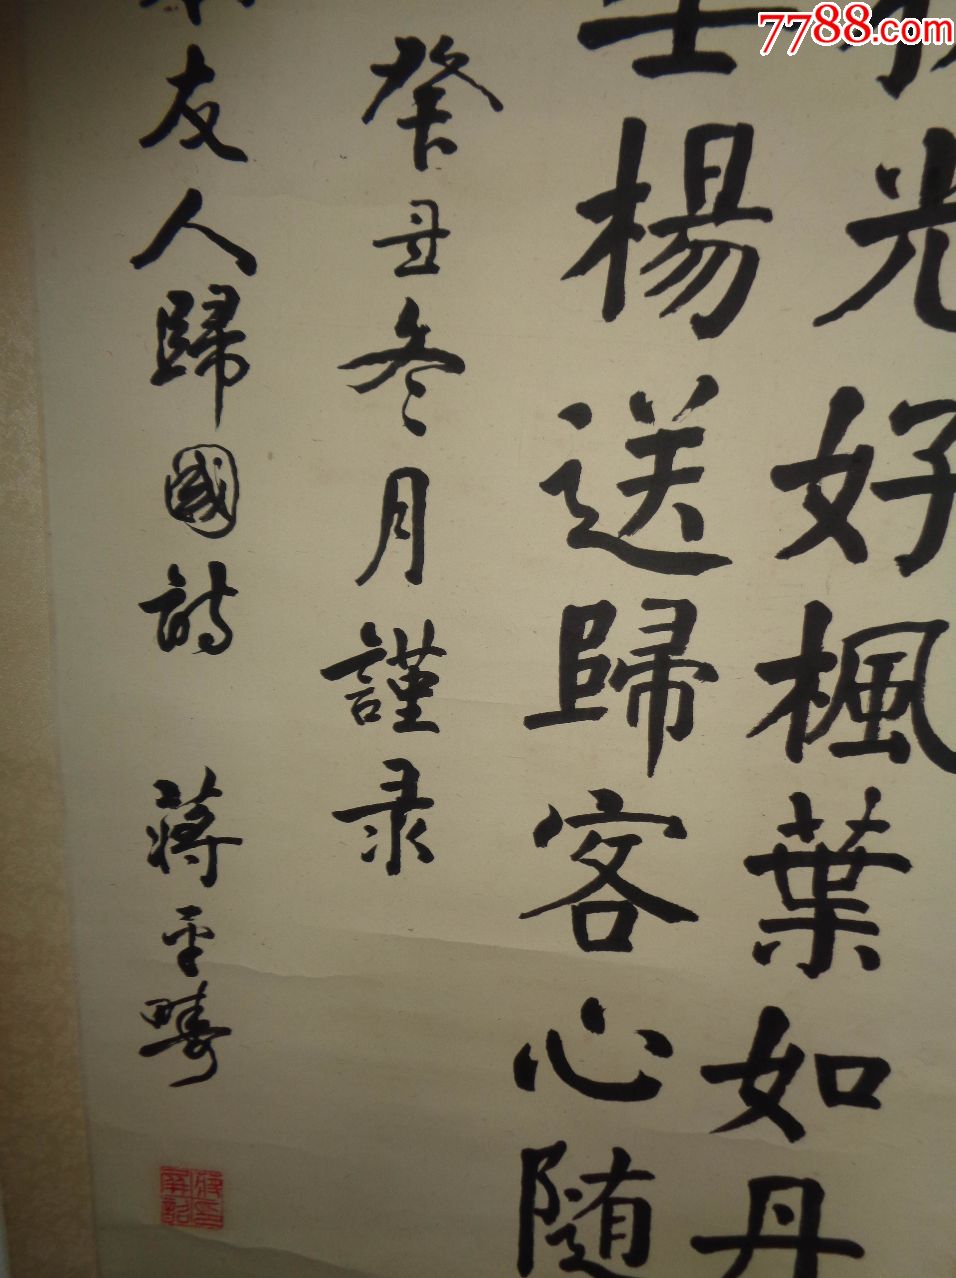 光好楓葉如丹
楊送歸客心隨
癸丑冬月謹录
友人歸國詩 蔣平疇
7788.com